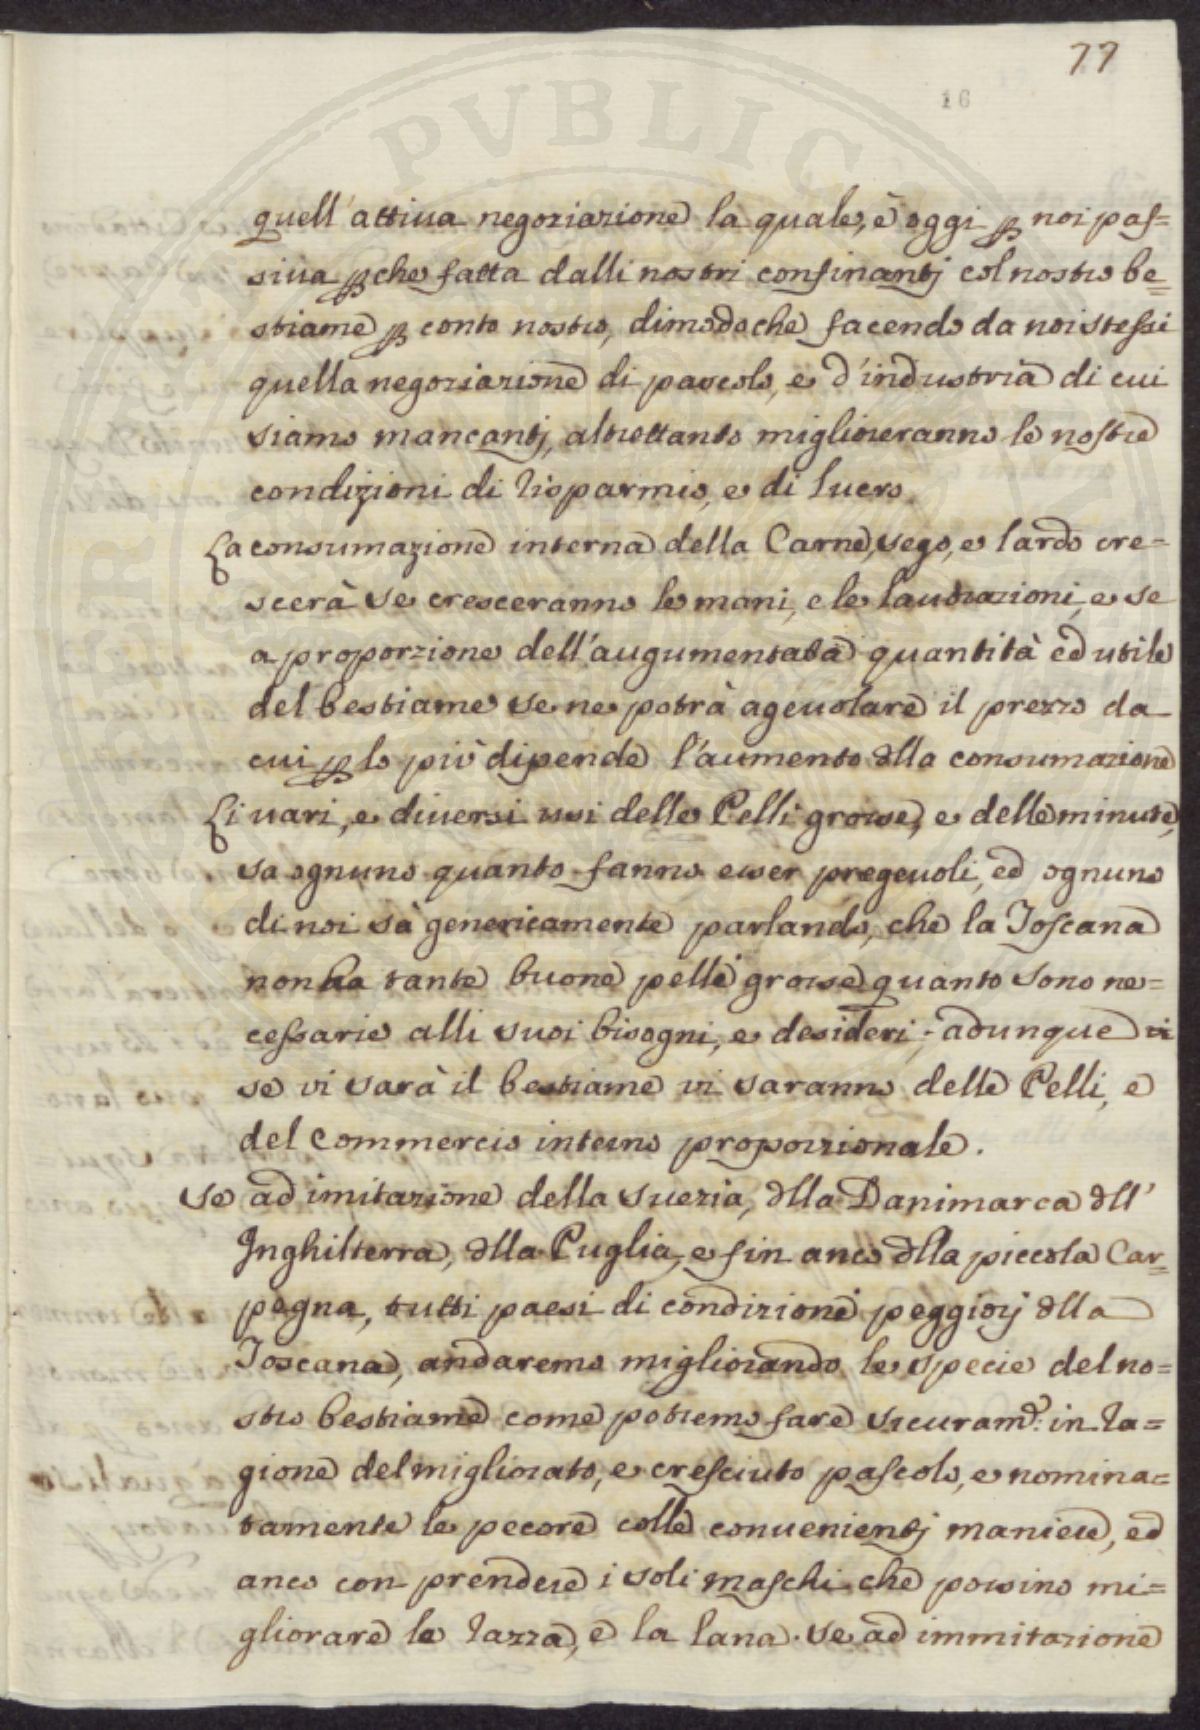 77
16
quell'attiua negoziazione la quale, è oggi ꝑ noi pas=
siua ꝑche fatta dalli nostri confinantj col nostro be=
stiame ꝑ conto nostro, dimodoche facendo da noi stessi
quella negoziazione di pascolo, e d'industria di cui
siamo mancantj, altrettanto miglioreranno le nostre
condizioni di risparmio, e di lucro.
La consumazione interna della Carne, sego, e lardo cre=
scerà se cresceranno le mani, e le lauorazioni, e se
a proporzione dell'augumentata quantità ed utile
del bestiame se ne potrà ageuolare il prezzo da
cui ꝑ lo più dipende l'aumento dlla consumazione
Li uari, e diuersi usi delle Pelli grosse, e delle minute,
sa ognuno quanto fanno esser pregeuoli, ed ognuno
di noi sà genericamente parlando, che la Toscana
non ha tante buone pelli grosse quanto sono ne=
cessarie alli suoi bisogni, e desideri; adunque vi
se vi sarà il bestiame vi saranno delle Pelli, e
del commercio interno proporzionale.
Se ad imitazione della Suezia, dlla Danimarca dll'
Inghilterra, dlla Puglia, e fin anco dlla piccola Car=
pegna, tutti paesi di condizione peggiorj dlla
Toscana, andaremo migliorando le specie del no=
stro bestiame come potremo fare sicuramᵉ: in ra=
gione del migliorato, e cresciuto pascolo, e nomina=
tamente le pecore colle conuenientj maniere, ed
anco con prendere i soli maschi che possino mi=
gliorare le razza, e la lana. Se ad immitazione